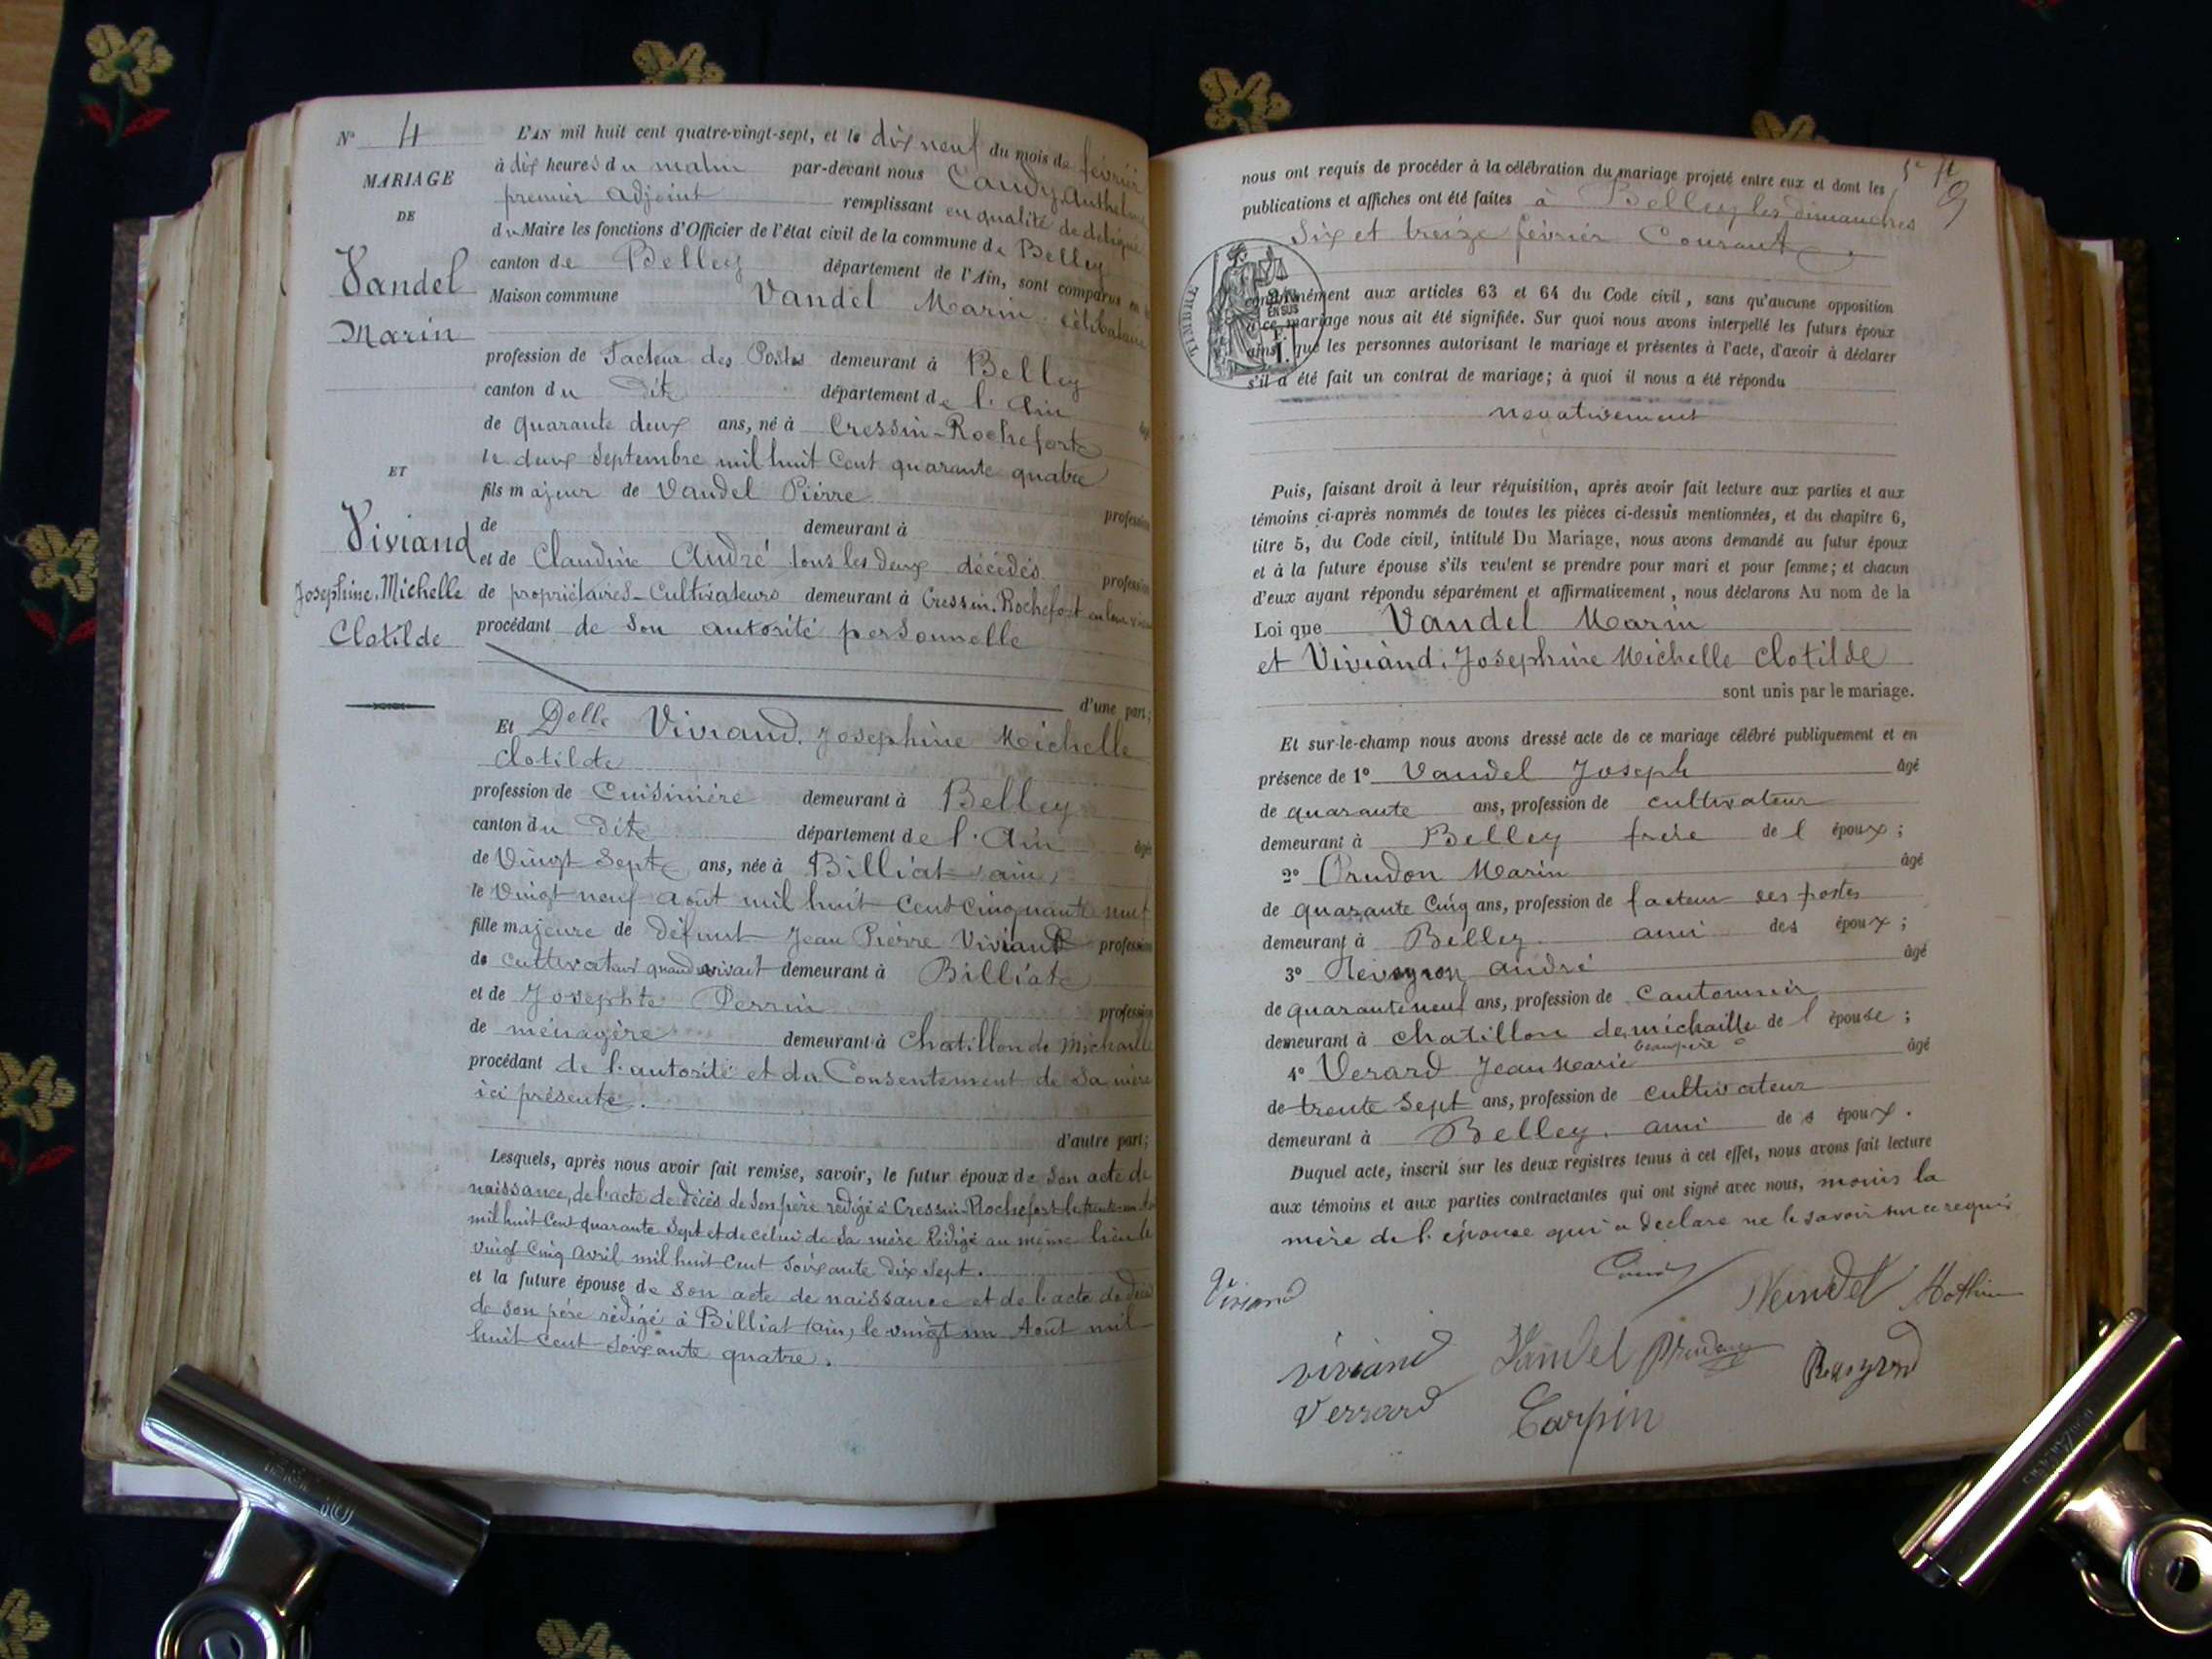 N° 4
MARIAGE
DE
Vandel
Marin
ET
Viviand
Josephine. Michelle
Clotilde
L'AN mil huit cent quatre-vingt-sept, et le dix neuf du mois de février
à dix heures du matin par-devant nous Candy Anthelme
premier adjoint remplissant en qualité de délégué
du Maire les fonctions d'Officier de l'état civil de la commune de Belley
canton de Belley département de l'Ain, sont comparus en la
Maison commune Vandel Marin célibataire
profession de facteur des Postes demeurant à Belley
canton du dit département de l'Ain âgé
de quarante deux ans, né à Cressin-Rochefort
le deux Septembre mil huit Cent quarante quatre
fils majeur de Vandel Pierre profession
de demeurant à
et de Claudine André tous les deux décédés profession
de propriétaires-Cultivateurs demeurant à Cressin-Rochefort
procédant de son autorité personnelle
d'une part;
Et Delle Viviand. Josephine Michelle
Clotilde
profession de Cuisinière demeurant à Belley
canton du dit département de l'Ain âgée
de Vingt Sept ans, née à Billiat (ain)
le Vingt neuf août mil huit Cent cinquante neuf
fille majeure de défunt Jean Pierre Viviand profession
de cultivateur quand vivait demeurant à Billiat
et de Josephte Perrin profession
de ménagère demeurant à Chatillon de Michaille
procédant de l'autorité et du Consentement de Sa mère
ici présente.
d'autre part;
Lesquels, après nous avoir fait remise, savoir, le futur époux de Son acte de
naissance, de l'acte de décès de Son père rédigé à Cressin-Rochefort le trente un
mil huit Cent quarante Sept et de celui de Sa mère Rédigé au même lieu le
vingt cinq avril mil huit Cent Soixante dix Sept.
et la future épouse de Son acte de naissance et de l'acte de décès
de son père rédigé à Billiat (ain) le vingt un Août mil
huit cent soixante quatre.
nous ont requis de procéder à la célébration du mariage projeté entre eux et dont les
publications et affiches ont été faites à Belley les dimanches
Six et treize février Courant
TIMBRE
EN SUS
conformément aux articles 63 et 64 du Code civil, sans qu'aucune opposition
à ce mariage nous ait été signifiée. Sur quoi nous avons interpellé les futurs époux
ainsi que les personnes autorisant le mariage et présentes à l'acte, d'avoir à déclarer
s'il a été fait un contrat de mariage; à quoi il nous a été répondu
négativement
Puis, faisant droit à leur réquisition, après avoir fait lecture aux parties et aux
témoins ci-après nommés de toutes les pièces ci-dessus mentionnées, et du chapitre 6,
titre 5, du Code civil, intitulé Du Mariage, nous avons demandé au futur époux
et à la future épouse s'ils veulent se prendre pour mari et pour femme; et chacun
d'eux ayant répondu séparément et affirmativement, nous déclarons Au nom de la
Loi que Vandel Marin
et Viviand. Josephine Michelle Clotilde
sont unis par le mariage.
Et sur-le-champ nous avons dressé acte de ce mariage célébré publiquement et en
présence de 1° Vandel Joseph âgé
de quarante ans, profession de cultivateur
demeurant à Belley frère de l époux;
2° Prudon Marin âgé
de quarante Cinq ans, profession de facteur des postes
demeurant à Belley ami des époux;
3° André âgé
de quarante neuf ans, profession de Cantonnier
demeurant à Chatillon de michaille de l épouse;
beaupère
4° Verard Jean Marie âgé
de trente Sept ans, profession de cultivateur
demeurant à Belley. ami des époux.
Duquel acte, inscrit sur les deux registres tenus à cet effet, nous avons fait lecture
aux témoins et aux parties contractantes qui ont signé avec nous, moins la
mère de l'épouse qui a déclaré ne le savoir sur ce requis
Viviand
Vandel
viviand Vandel
Verrard Carpin